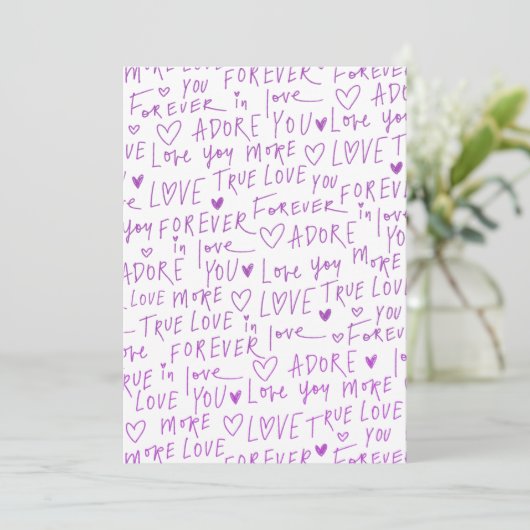 MORE LOVE YOU FOREVER FOREVER
FOREVER in love ♡ ADORE
VE Love you MORE ♡ LOVE TRUE
LOVE TRUE LOVE YOU FOREVER
you FOREVER FOREVER in love
in love ♡ ADORE YOU
ADORE YOU ♥ Love you MORE
LOVE MORE ♡ LOVE TRUE LOVE
TRUE LOVE in love YOU
FOREVER FOREVER
TRUE in love ♡ ADORE ♥ lo
LOVE YOU ♥ Love you MORE
♡ MORE ♡ LOVE TRUE LOVE
MORE LOVE FOREVER ♥ in love YOU
YOU FOREVER FOREVER